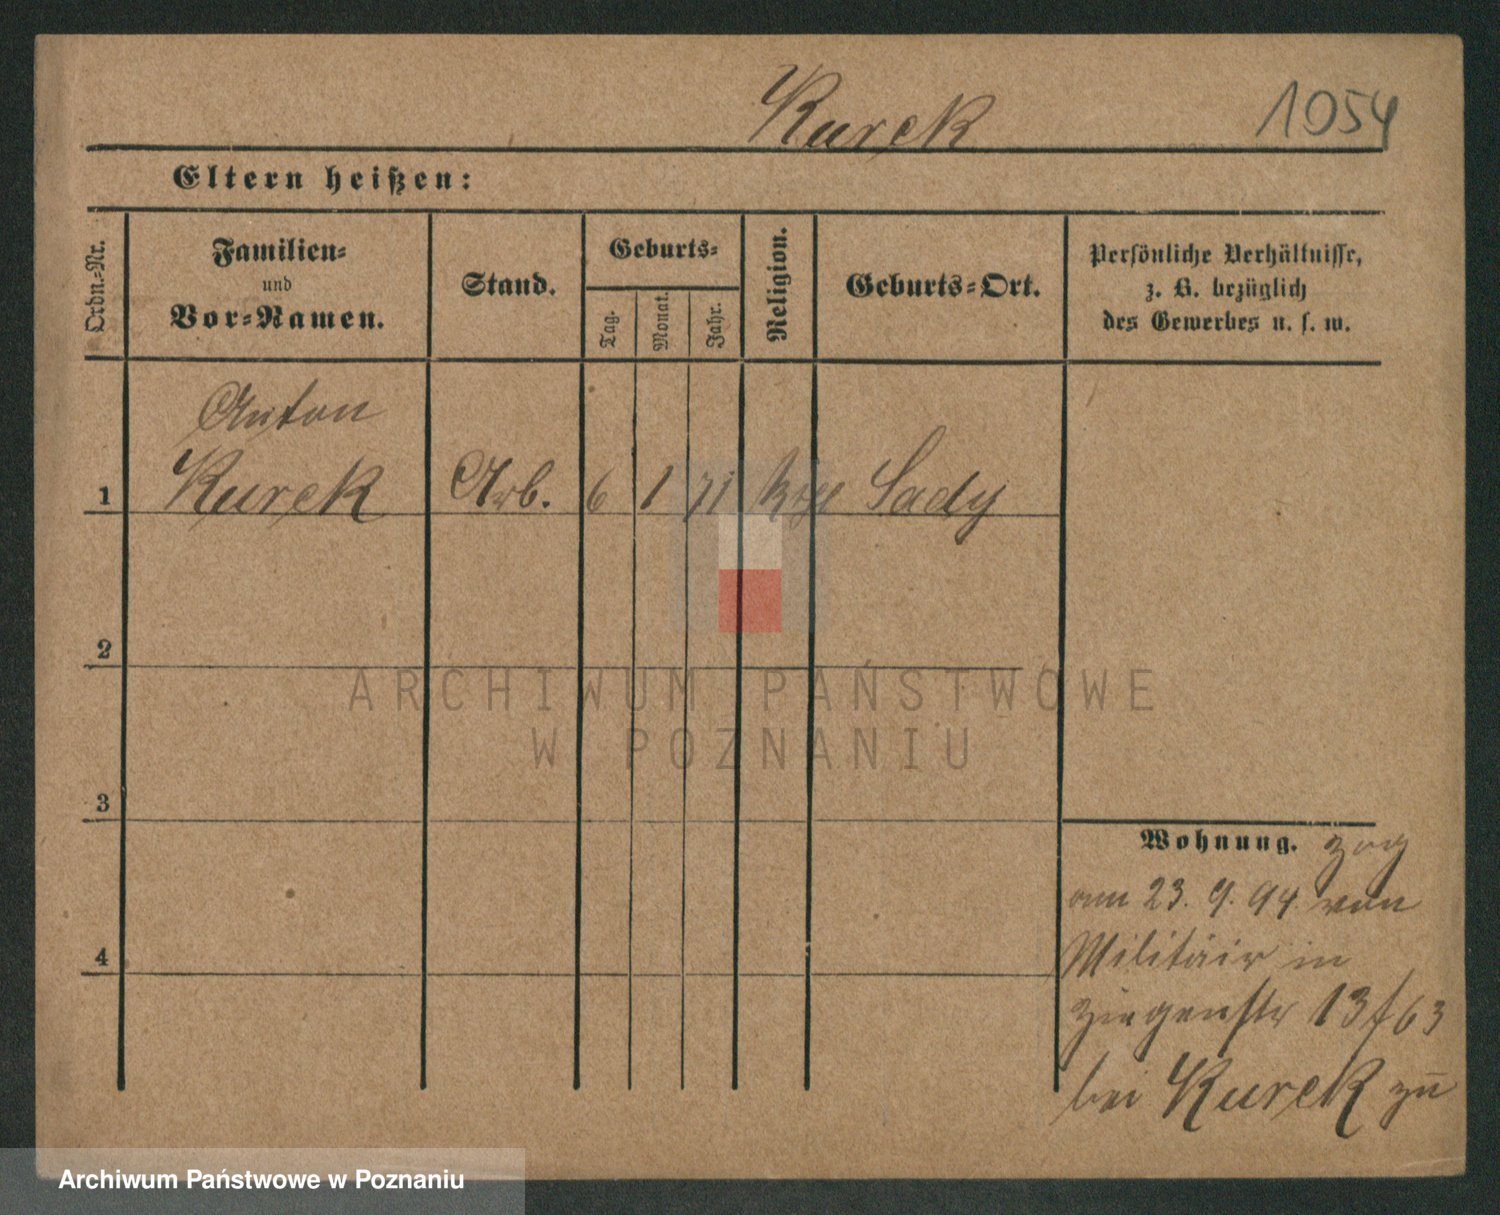 Kurek 1054
Eltern heißen:
Ordn.-Nr.
Familien-
und
Vor-Namen.
Stand.
Geburts-
Tag.
Monat.
Jahr.
Religion.
Geburts-Ort.
Persönliche Verhältnisse,
z. B. bezüglich
des Gewerbes u. s. w.
Anton
1 Kurek Arb. 6 1 71 Sady
2
3
4
Wohnung. zog
am 23. 9. 94. vom
Militair in
Ziegenstr 13/63
bei Kurek zu
ARCHIWUM PAŃSTWOWE
W POZNANIU
Archiwum Państwowe w Poznaniu